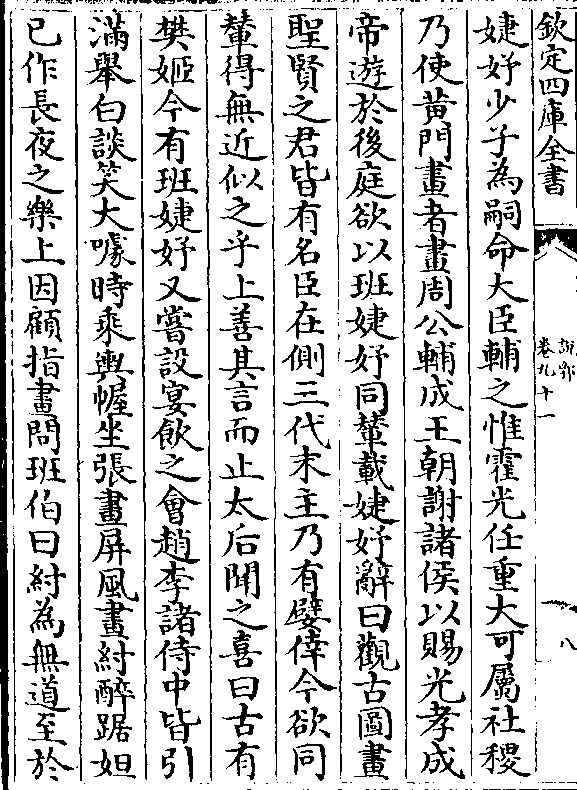 欽定四庫全書
說郛
卷九十一
八
婕妤少子為嗣命大臣輔之惟霍光任重大可屬社稷
乃使黄門畫者畫周公輔成王朝謝諸侯以賜光孝成
帝遊於後庭欲以班婕妤同輦載婕妤辭曰觀古圖畫
聖賢之君皆有名臣在側三代末主乃有嬖倖今欲同
輦得無近似之乎上善其言而止太后聞之喜曰古有
樊姬今有班婕妤又嘗設宴飲之會趙李諸侍中皆引
滿舉白談笑大噱時乘輿幄坐張畫屏風畫紂醉踞妲
己作長夜之樂上因顧指畫問班伯曰紂為無道至於